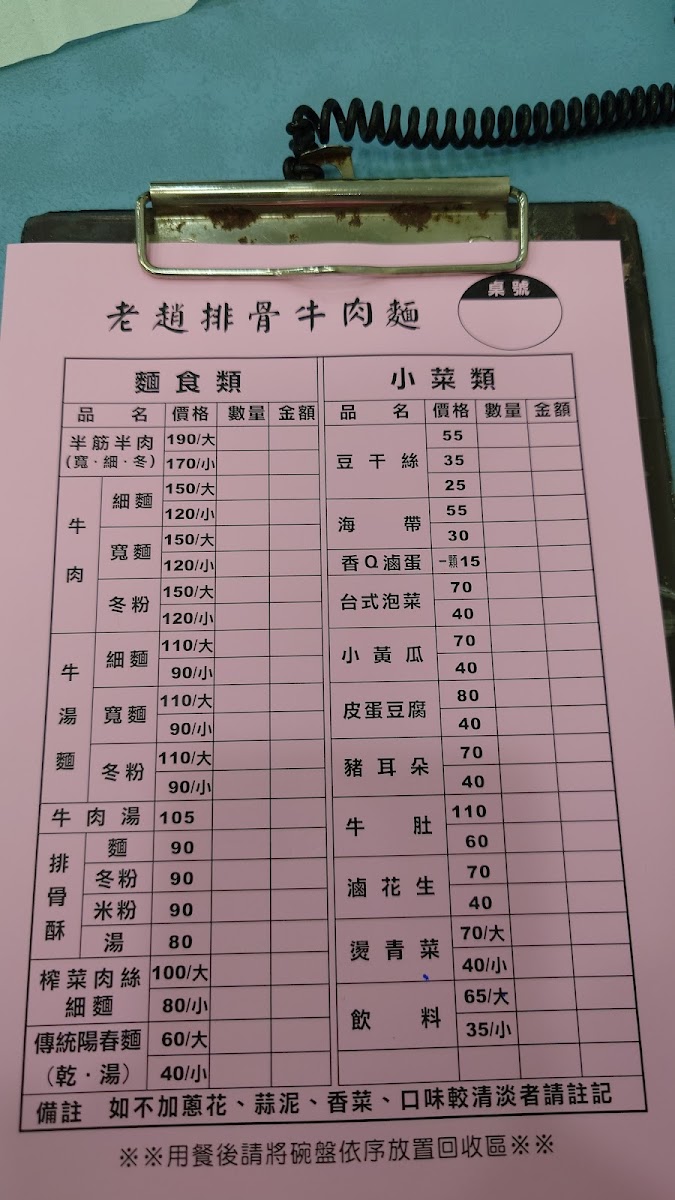 老趙排骨牛肉麵
桌號
麵食類
品名 價格 數量 金額
半筋半肉 190/大
(寬·細·冬) 170/小
牛肉
細麵 150/大
120/小
寬麵 150/大
120/小
冬粉 150/大
120/小
牛湯麵
細麵 110/大
90/小
寬麵 110/大
90/小
冬粉 110/大
90/小
牛肉湯 105
排骨酥
麵 90
冬粉 90
米粉 90
湯 80
榨菜肉絲 100/大
細麵 80/小
傳統陽春麵 60/大
(乾·湯) 40/小
小菜類
品名 價格 數量 金額
豆干絲 55
35
25
海帶 55
30
香Q滷蛋 一顆15
台式泡菜 70
40
小黃瓜 70
40
皮蛋豆腐 80
40
豬耳朵 70
40
牛肚 110
60
滷花生 70
40
燙青菜 70/大
40/小
飲料 65/大
35/小
備註 如不加蔥花、蒜泥、香菜、口味較清淡者請註記
※※用餐後請將碗盤依序放置回收區※※